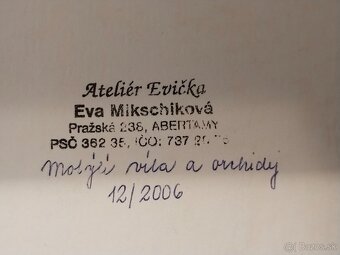 Ateliér Evička
Eva Mikschiková
Pražská 238, ABERTAMY
PSČ 362 35, IČO: 737
Motýlí víla a orchidej
12/2006
Bazos.sk